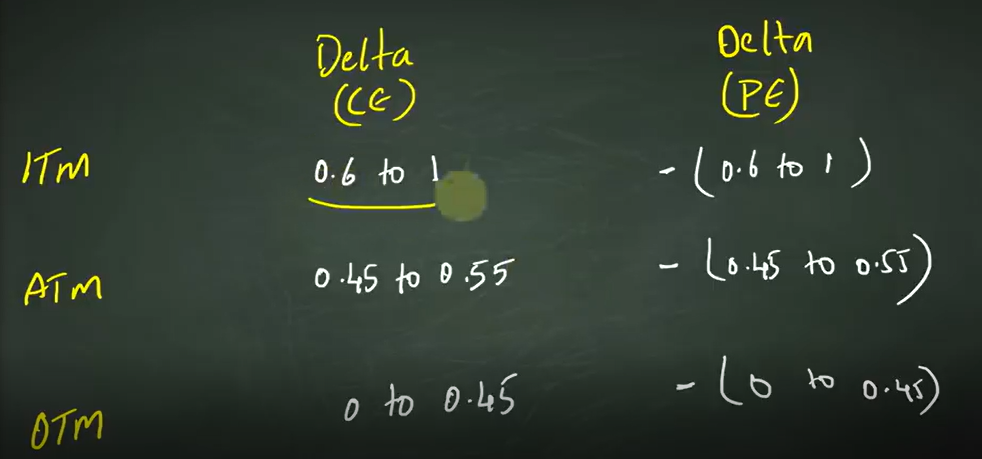 Delta Delta
(CE) (PE)
ITM 0.6 to 1 - (0.6 to 1)
ATM 0.45 to 0.55 - (0.45 to 0.55)
OTM 0 to 0.45 - (0 to 0.45)